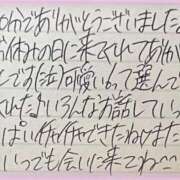 めかでありがとうございました。
お休みの日に来てくれてありがとう
です(泣)可愛いって選んで
くれたりいろんなお話していっ
ぱいイチャイチャできたねけました
いつでも会いに来てね〜〜